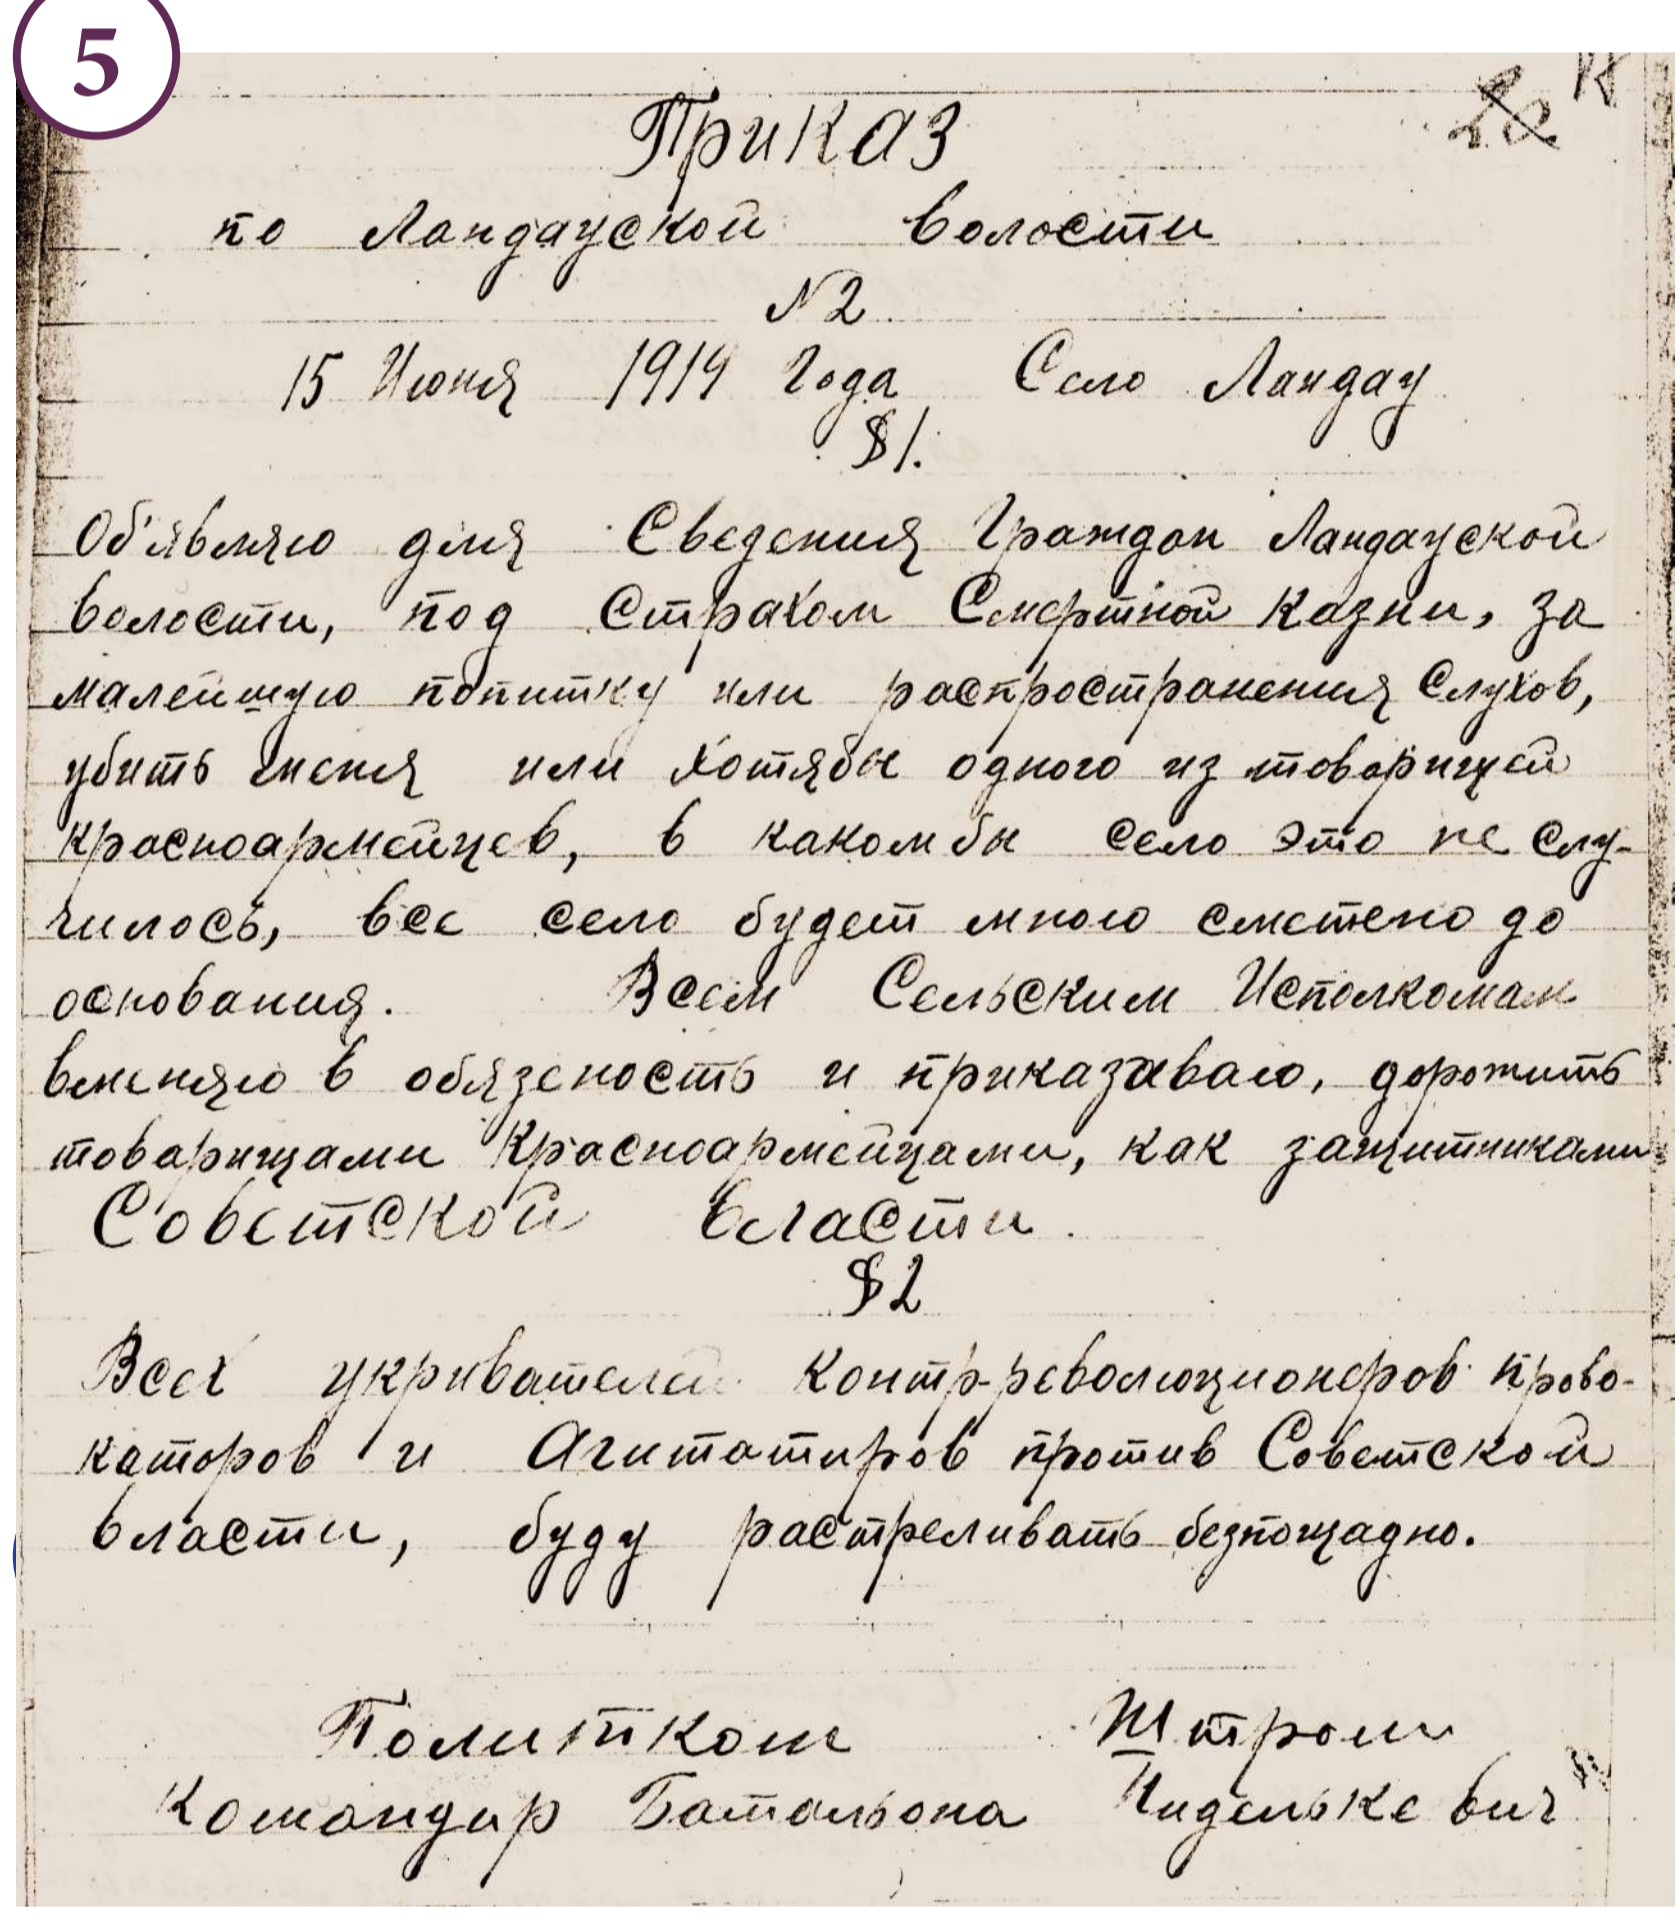 5
Приказ
по Ландауской волости
N2
15 Июня 1919 Года Село Ландау
§1.
Об'являю для Сведения Граждан Ландауской
волости, под Страхом Смертной казни, за
малейшую попитку или распространения Слухов,
убить меня или хотябы одного из товарищей
красноармейцев, в какомбы село это не слу-
чилось, все село будет мною сметено до
основания. Всем Сельским Исполкомам
вменяю в обязеность и приказиваю, дорожить
товарищами Красноармейцами, как защитниками
Советской власти.
§2
Всех укривателей контр-революционеров прово-
каторов и Агитатиров против Советской
власти, буду растреливать безпощадно.
Политком Штром
Командир Батальона